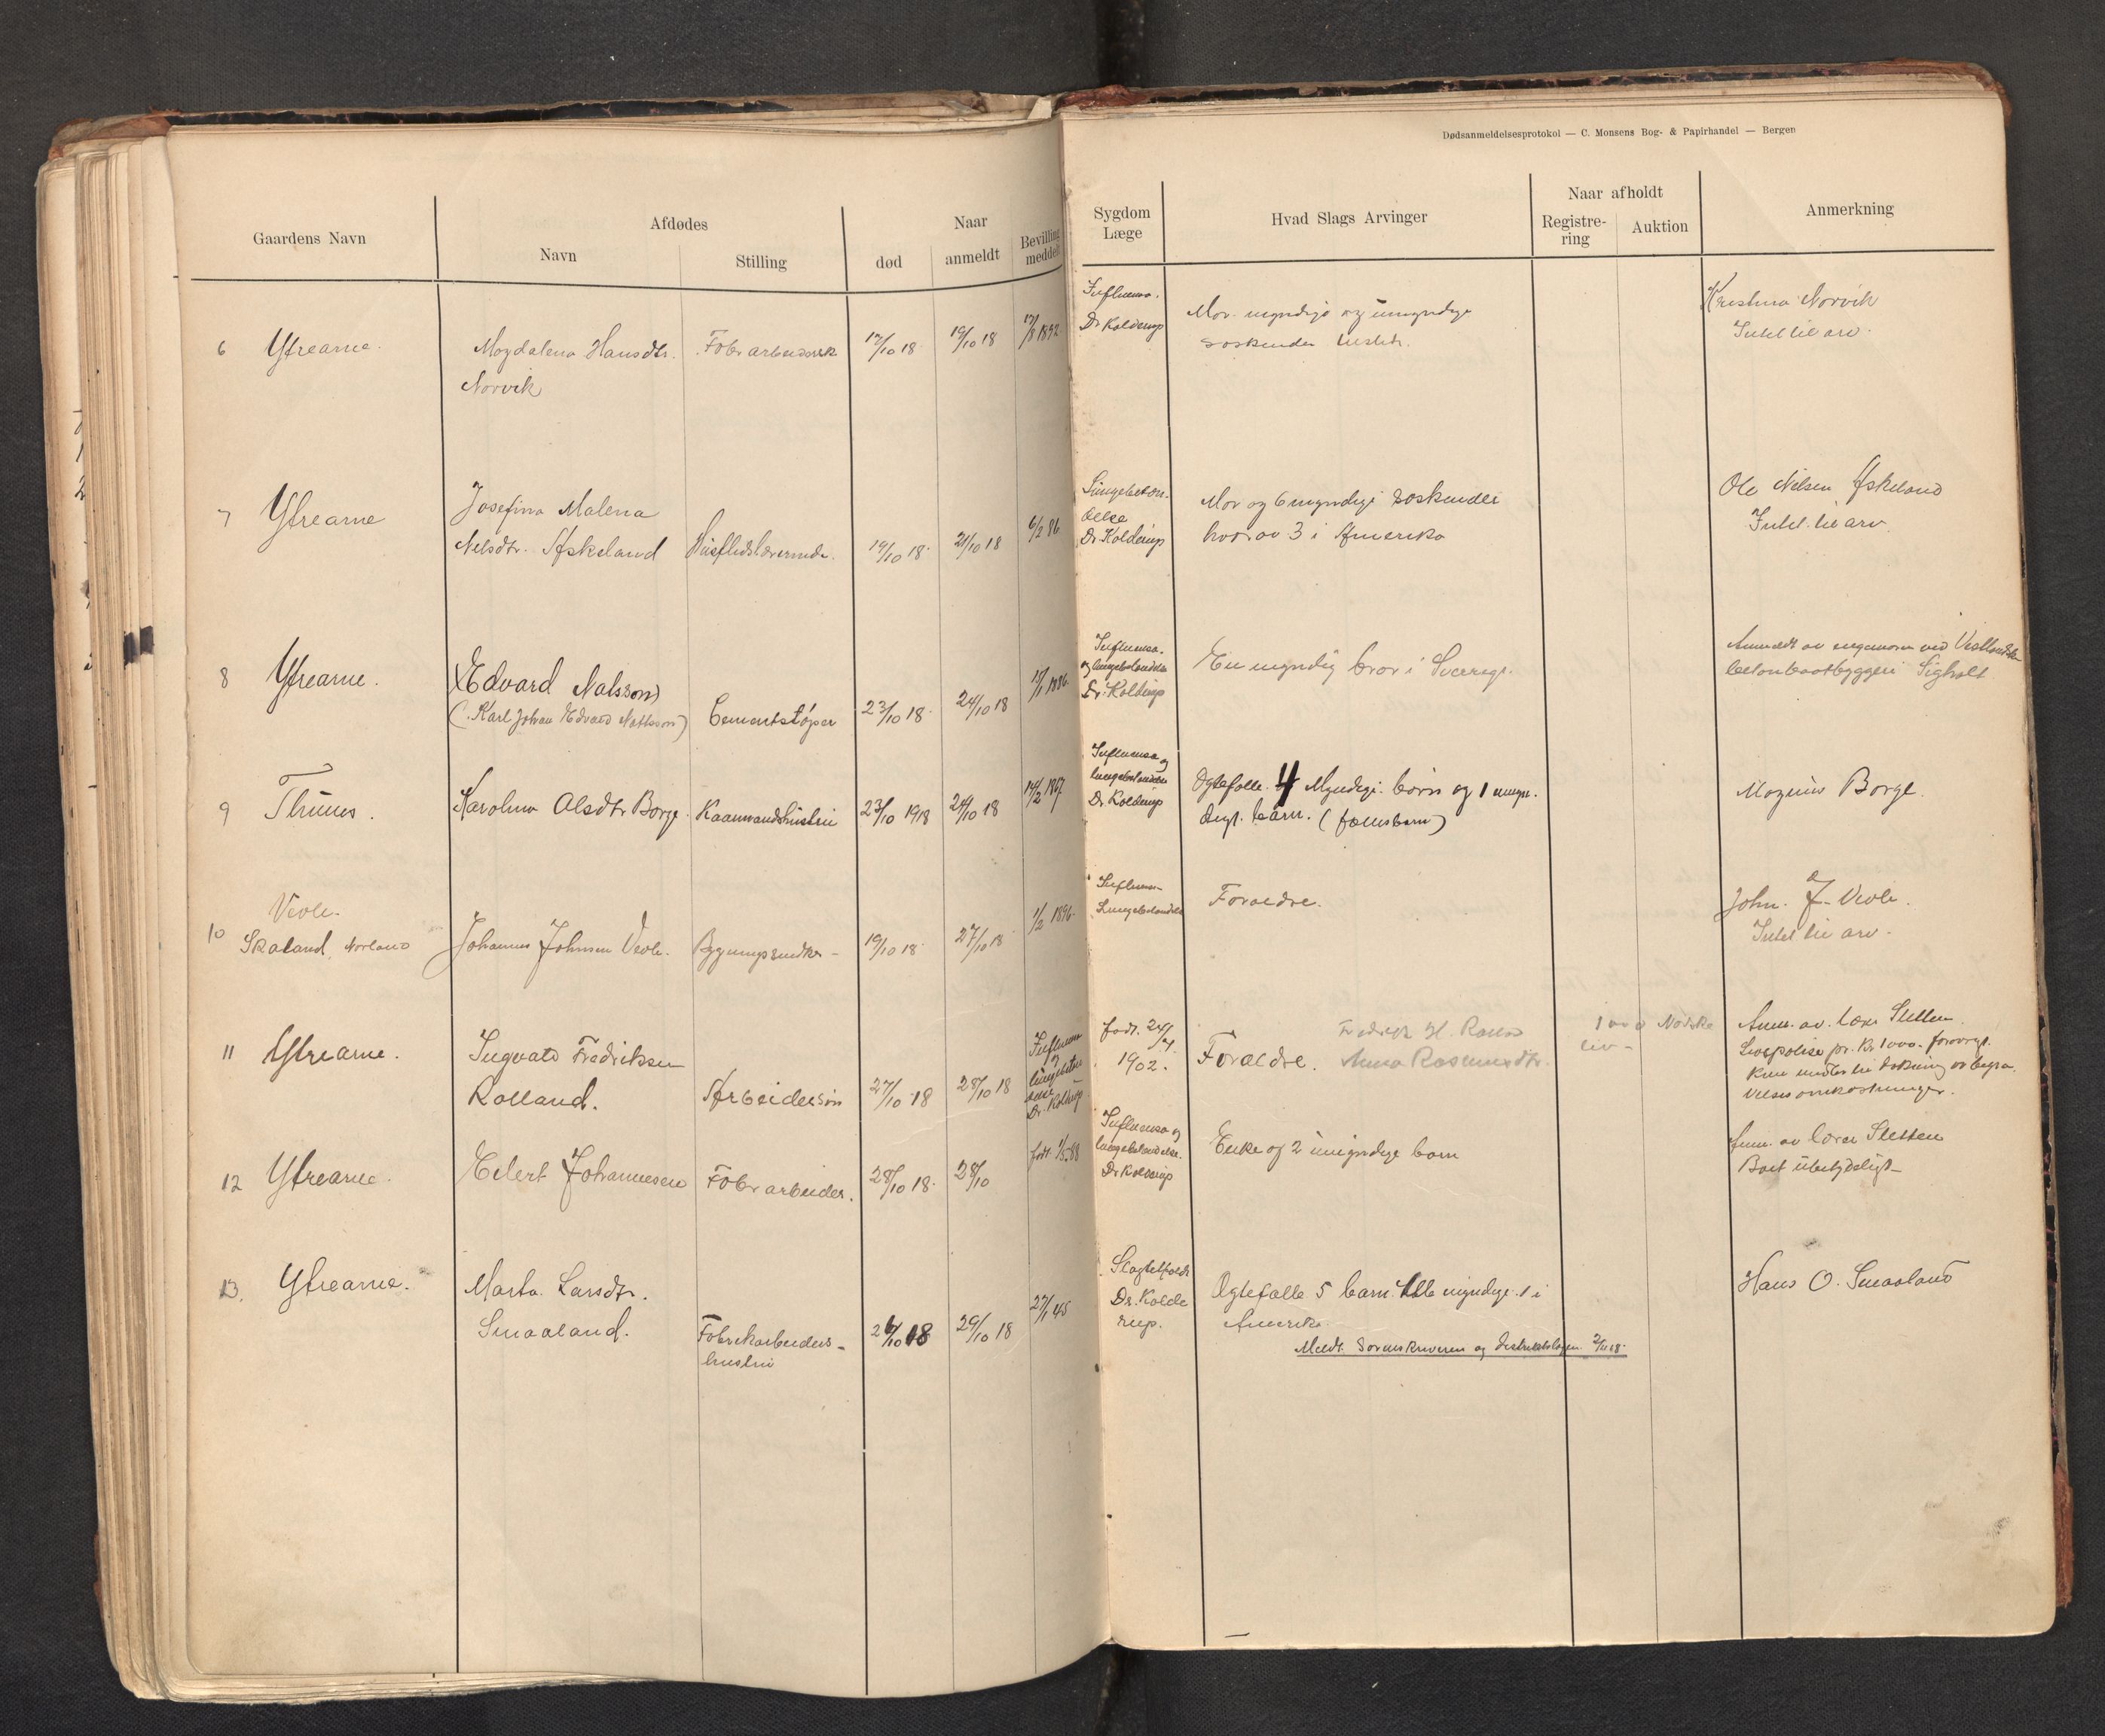 Dødsanmeldelsesprotokol — C. Monsens Bog- & Papirhandel — Bergen
Gaardens Navn
Afdødes
Navn
Stilling
Naar
død
anmeldt
Bevilling
meddelt
Sygdom
Læge
Hvad Slags Arvinger
Naar afholdt
Registre-
ring
Auktion
Anmerkning
6 Ytrearne.
Magdalena Hansdtr.
Norvik
Fabr arbeiderske
17/10 18
19/10 18
17/8 1892
Influensa.
Dr Kolderup
Mor. myndige og umyndige
søskender
Kristina Norvik
Intet til arv.
7 Ytrearne
Josefina Malena
Nelsdtr. Askeland
Husflidslærerinde.
19/10 18
21/10 18
6/2 86
Lungebetæn-
delse
Dr. Kolderup
Mor og 6 myndige søskender
hvorav 3 i Amerika
Ole Nilsen Askeland
Intet til arv.
8 Ytrearne.
Edvard Nalsson
(Karl Johan Edvard Nattsson)
Cementstøper
23/10 18
24/10 18
Influensa.
og lungebetændelse
Dr. Kolderup
En myndig bror i Sverige.
Anmeldt av ved
betonbaatbyggeri Sigholt
9 Thunes.
Karolina Olsdtr Borge
Kaarmandshustru
23/10 1918
24/10 18
14/2 1867
Influensa og
lungebetændelse
Dr Kolderup
Ogtefalle. 4 Myndige. børn og 1 umyn.
digt. barn. (fællesbarn)
Magnus Borge.
10 Veole.
Skaland, Norland
Johannes Johnsen Veole.
Bygningssnedker -
19/10 18
27/10 18
1/2 1896
Influensa-
Lungebetændelse
Foraeldre.
John. J. Veole.
Intet til arv.
11 Ytrearne.
Ingvald Fredriksen
Rolland.
Arbeidersøn
27/10 18
28/10 18
Influensa
og
lungebetæn
delse
Dr. Kolderup
født. 24/4
1902.
Foraeldre.
Fredrik H. Rolland
Anna Rasmusdtr.
1000 Norske
liv-
Anm. av. lærer Sletten.
Livspolise pr. Kr 1000. forøvrigt.
Kun midler til dækning av begra-
velsesomkostninger.
12 Ytrearne.
Eilert Johannesen
Fabr arbeider.
28/10 18
28/10
født 1/5 88
Influensa og
lungebetændelse.
Dr Kolderup
Enke og 2 umyndige barn
Anm. av lærer Sletten
Boet ubetydeligt
13. Ytrearne.
Marta Larsdtr.
Smaaland.
Fabrikarbeiders-
hustru
26/10 18
29/10 18
27/1 45
Slagtilfælde
Dr. Kolde
rup.
Ogtefalle 5 barn. Alle myndige. 1 i
Amerika
Meldt Sorenskriveren og distriktslægen 2/11 18.
Hans O. Smaaland